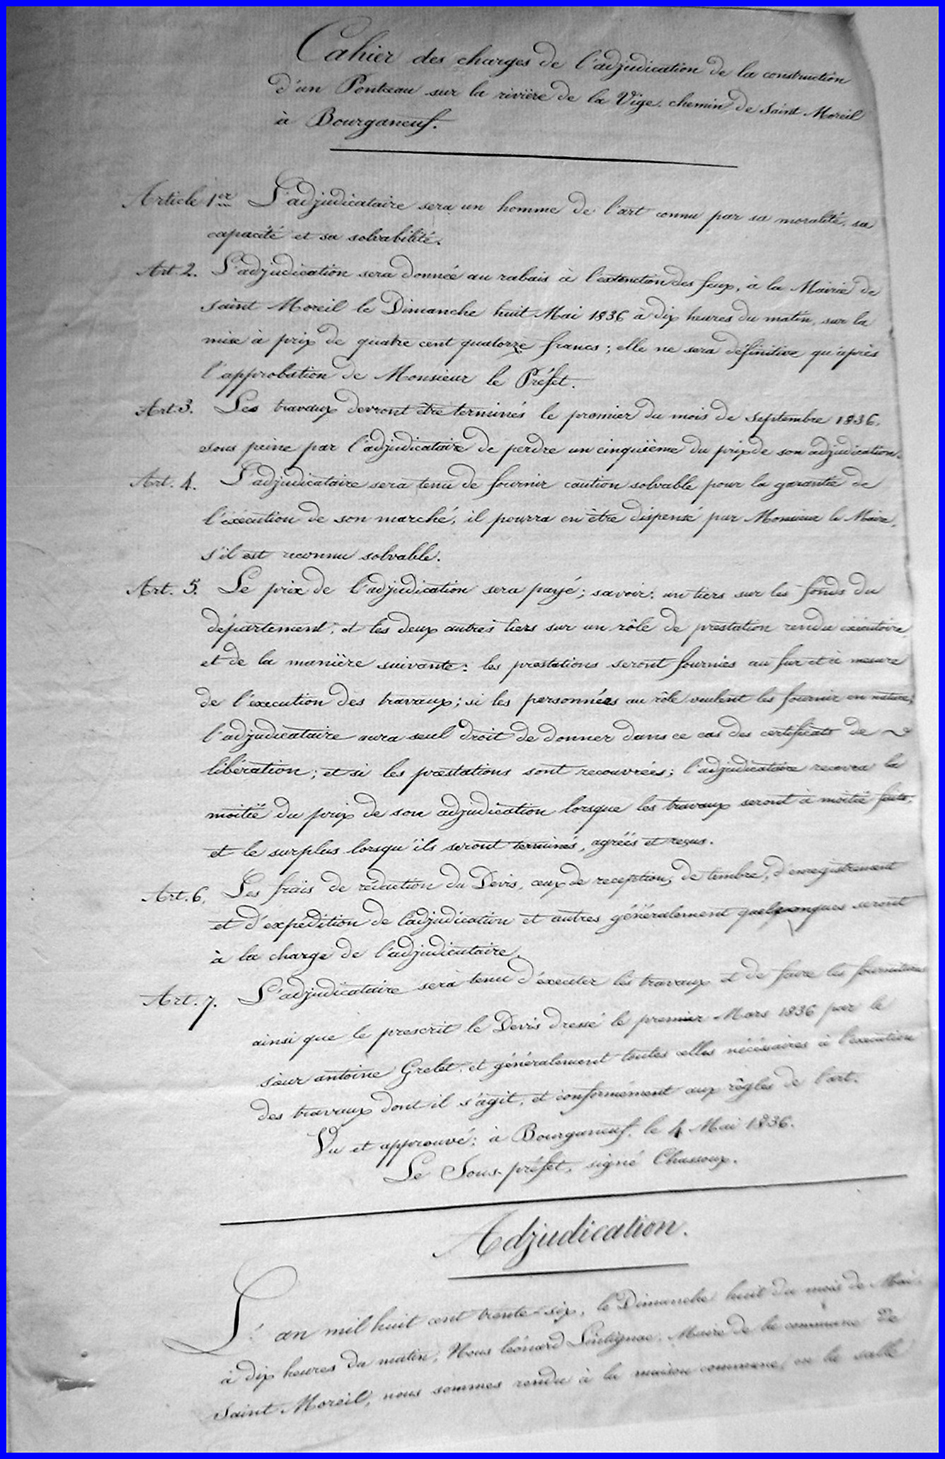 Cahier des charges de l'adjudication de la construction
d'un Ponteau sur la rivière de la Vige, chemin de Saint Moreil
à Bourganeuf.
Article 1er L'adjudicataire sera un homme de l'art connu par sa moralité, sa
capacité et sa solvabilité.
Art. 2. L'adjudication sera donnée au rabais à l'extinction des feux, à la Mairie de
saint Moreil le Dimanche huit Mai 1836 à dix heures du matin, sur la
mise à prix de quatre cent quatorze francs ; elle ne sera définitive qu'après
l'approbation de Monsieur le Préfet.
Art 3. Les travaux devront être terminés le premier du mois de septembre 1836,
sous peine par l'adjudicataire de perdre un cinquième du prix de son adjudication.
Art. 4. L'adjudicataire sera tenu de fournir caution solvable pour la garantie de
l'exécution de son marché, il pourra en être dispensé par Monsieur le Maire,
s'il est reconnu solvable.
Art. 5. Le prix de l'adjudication sera payé ; savoir : un tiers sur les fonds du
département, et les deux autres tiers sur un rôle de prestation rendu exécutoire
et de la manière suivante : les prestations seront fournies au fur et à mesure
de l'execution des travaux ; si les personnées au rôle veulent les fournir en nature,
l'adjudicataire aura seul droit de donner dans ce cas des certificats de
libération ; et si les prestations sont recouvrées ; l'adjudicataire recevra la
moitié du prix de son adjudication lorsque les travaux seront à moitié faits,
et le surplus lorsqu'ils seront terminés, agréés et reçus.
Art. 6. Les frais de rédaction du Devis, ceux de reception, de timbre, d'enregistrement
et d'expédition de l'adjudication et autres généralement quelconques seront
à la charge de l'adjudicataire.
Art. 7. L'adjudicataire sera tenu d'executer les travaux et de faire les fournitures
ainsi que le prescrit le Devis dressé le premier Mars 1836 par le
sieur antoine Grelet, et généralement toutes celles nécessaires à l'exécution
des travaux dont il s'agit, et conformément aux règles de l'art.
Vu et approuvé ; à Bourganeuf, le 4 Mai 1836.
Le Sous-préfet, signé Chassoux.
Adjudication.
L'an mil huit cent trente-six, le Dimanche huit du mois de Mai,
à dix heures du matin, Nous léonard Maire de la commune de
Saint Moreil, nous sommes rendu à la maison commune, en la salle